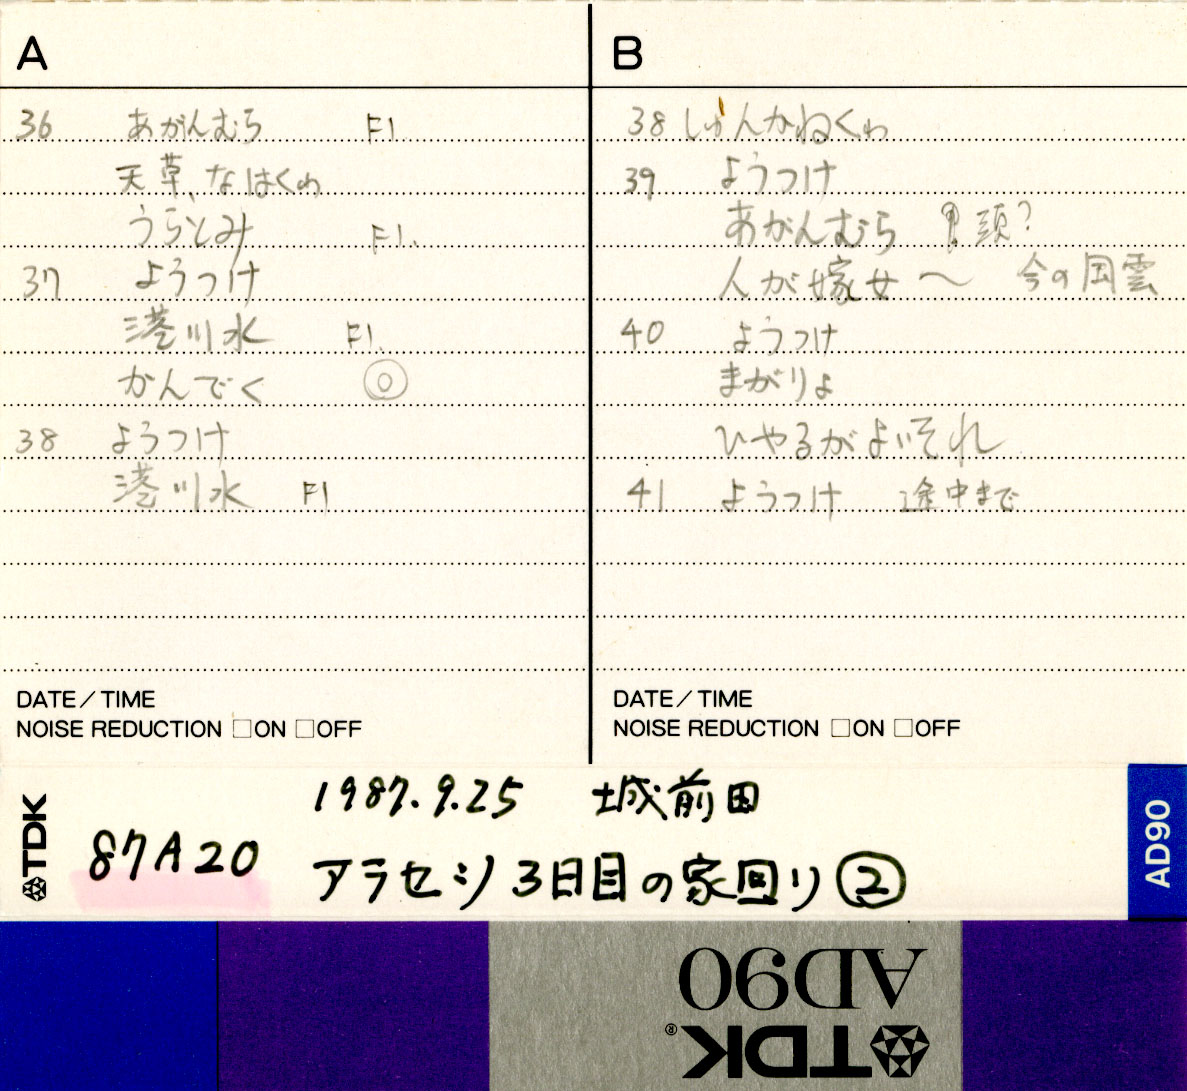 A
36 あがんむら F1.
天草、なはくゎ
うらとみ F1.
37 ようつけ
港川水 F1.
かんでく ◎
38 ようつけ
港川水 F1
DATE/TIME
NOISE REDUCTION □ON □OFF
B
38 しゅんかねくゎ
39 ようつけ
あがんむら 頭?
人が嫁女〜 今の風雲
40 ようつけ
まがりょ
ひやるがよいそれ
41 ようつけ 途中まで
DATE/TIME
NOISE REDUCTION □ON □OFF
TDK
87A20
1987.9.25 城前田
アラセツ3日目の家回り②
AD90
AD90
TDK®